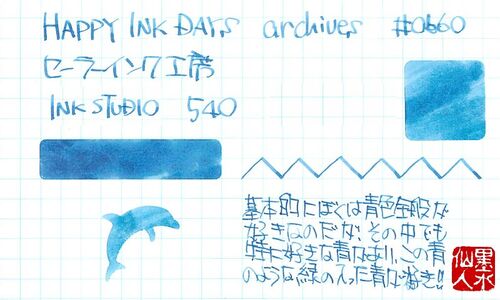 HAPPY INK DAYS archives #0660
セーラーインク工房
INK STUDIO 540
基本的にぼくは青色全般な
好きなのだな、その中でも
特に好きな青なおり、この青
のような、緑の入った青な好き!!
仙人
墨水